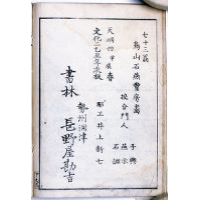 七十三翁
鳥山石燕豊房画
校合門人
子興
燕示
石調
天明四甲辰春
文化二乙丑年求板
彫工井上新七
書林
勢州洞津
長野屋勘吉